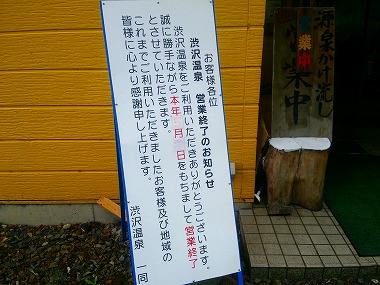 お客様各位
渋沢温泉 営業終了のお知らせ
渋沢温泉をご利用いただきありがとうございます。
誠に勝手ながら本年 月 日をもちまして営業終了
とさせていただきます。
これまでご利用いただきましたお客様及び地域の
皆様に心より感謝申し上げます。
渋沢温泉 一同
源泉かけ流し
営業中